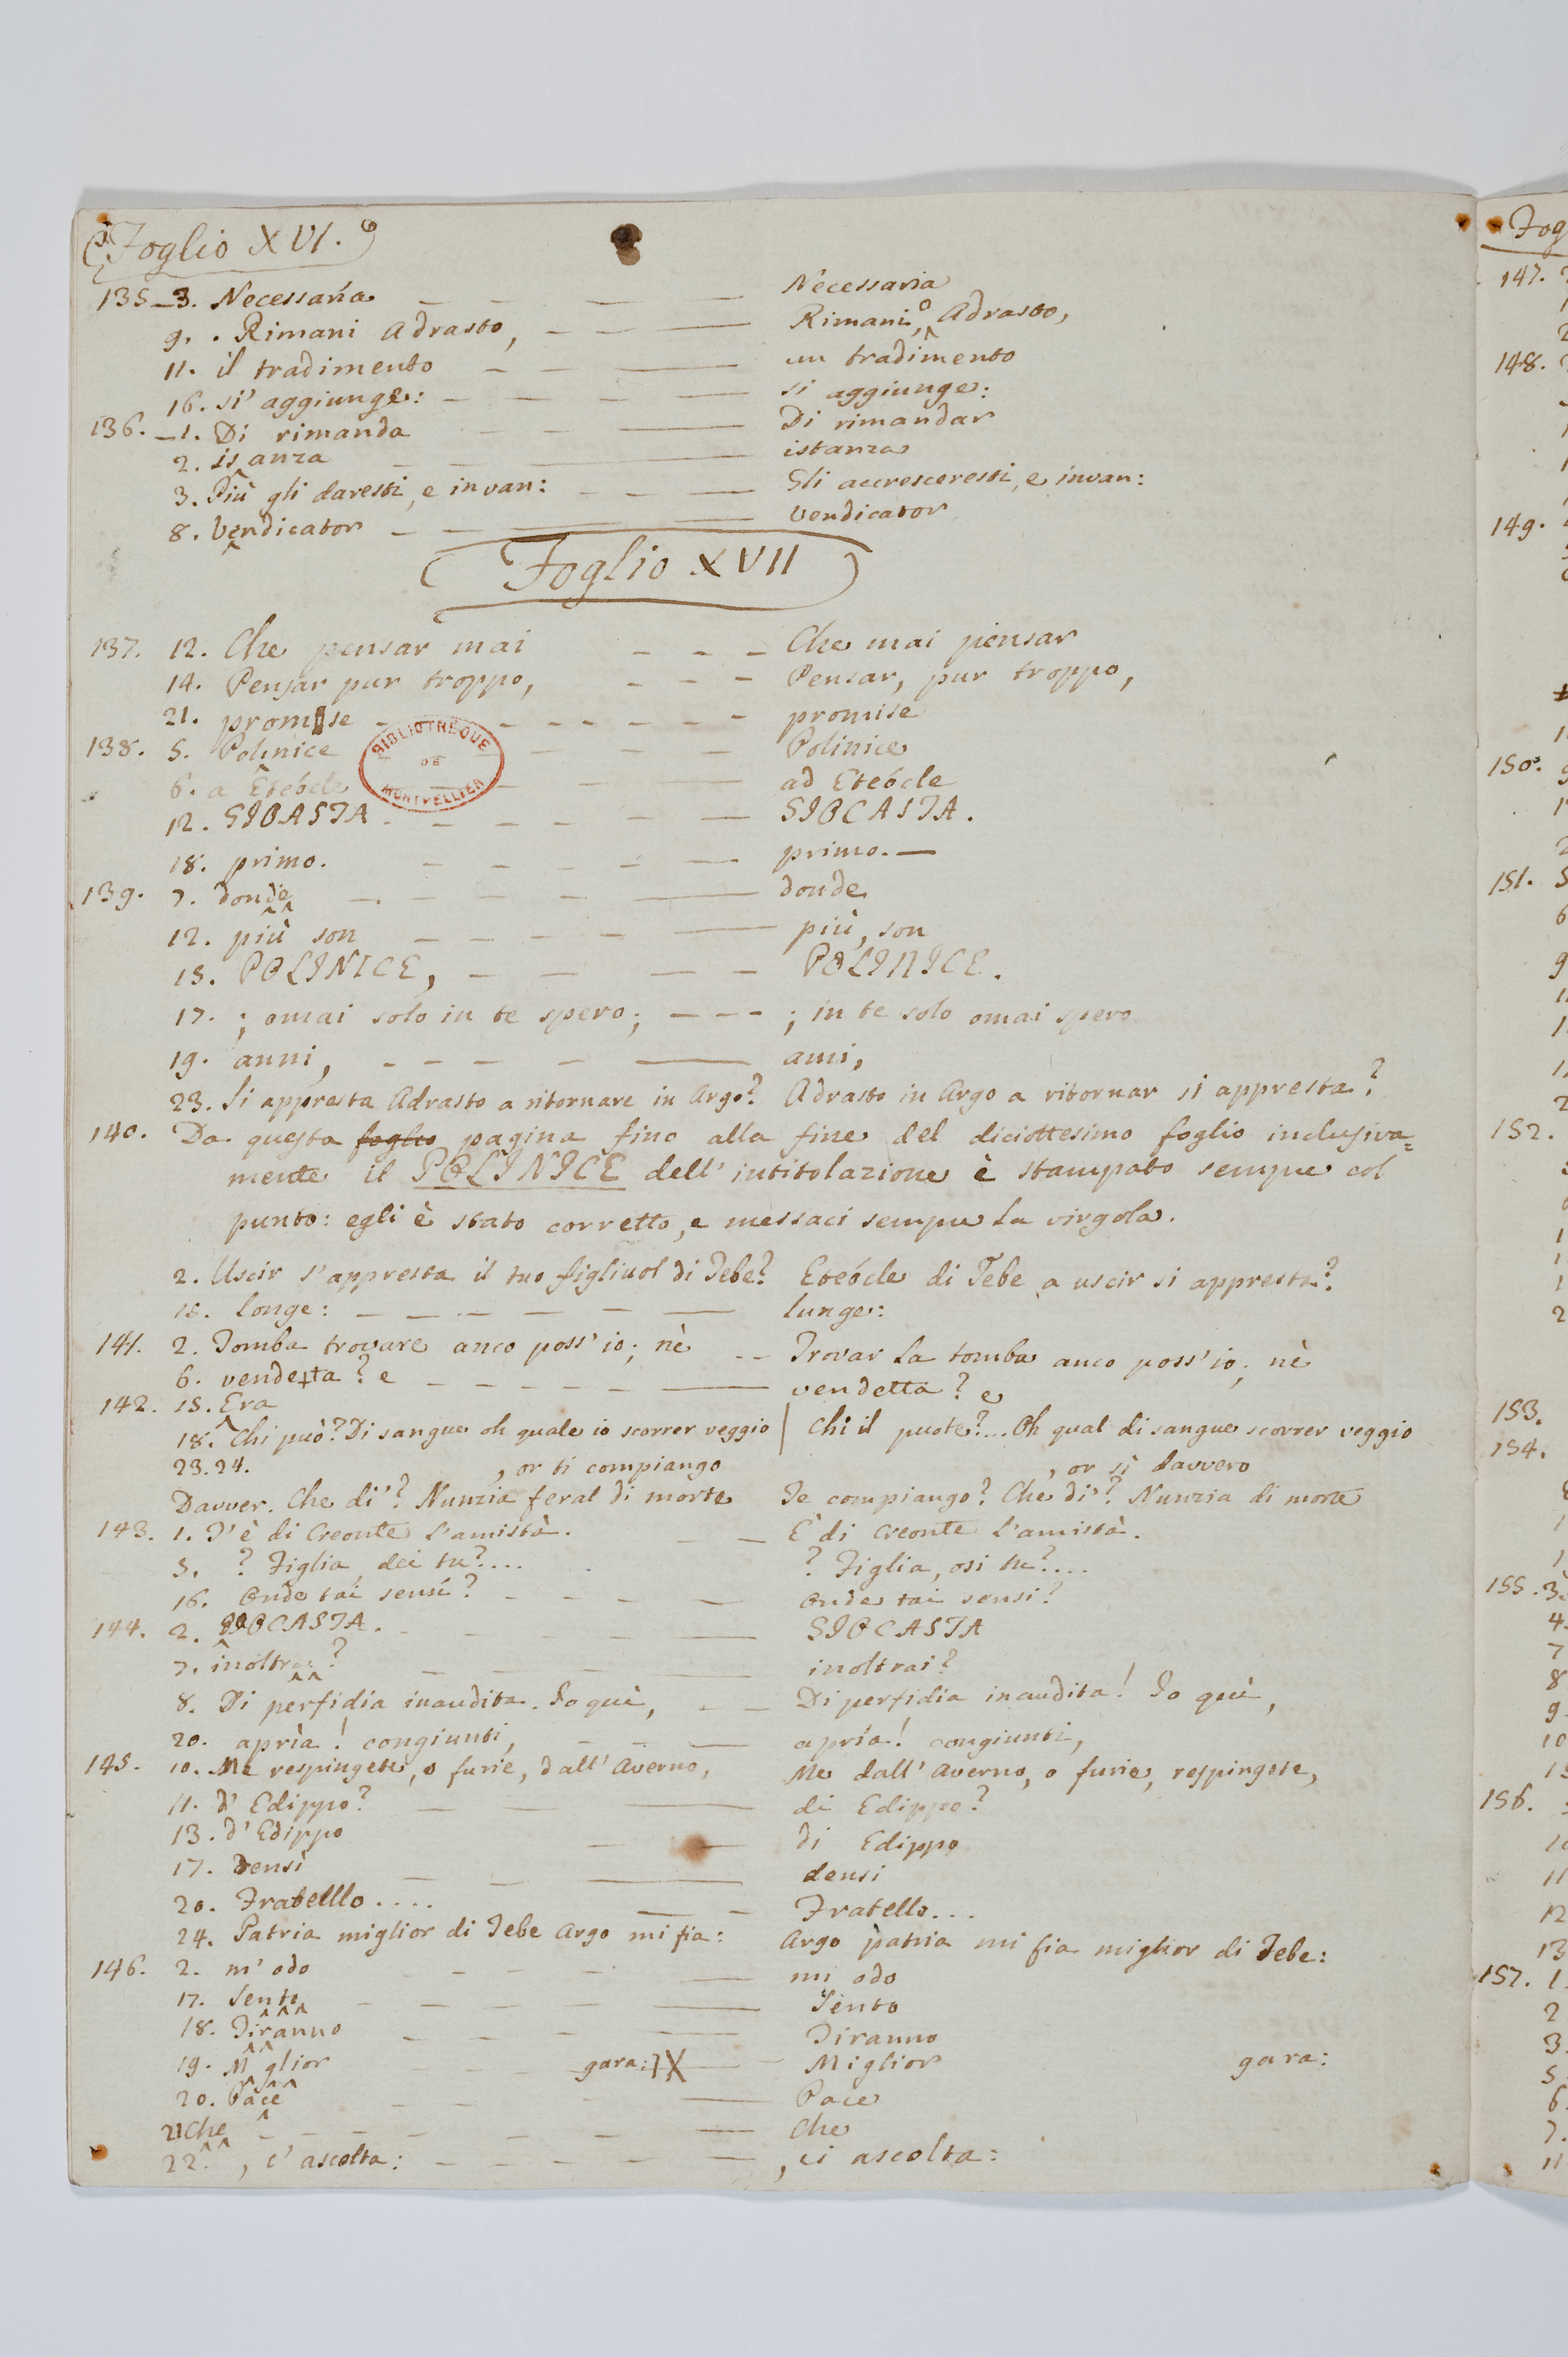 Foglio XVI.
135_3. Necessaria _ _ _ _ Necessaria
9. . Rimani Adrasto, _ _ _ Rimani, o Adrasto,
11. il tradimento _ _ _ un tradimento
16. si' aggiunge: _ _ _ _ si aggiunge:
136. _1. Di rimanda _ _ _ Di rimandar
2. is anza _ _ _ istanza
3. Più gli daresti, e invan: _ _ _ Gli accresceresti, e invan:
8. Vendicator _ _ _ _ Vendicator
Foglio XVII
137. 12. Che pensar mai _ _ _ Che mai pensar
14. Pensar pur troppo, _ _ _ Pensar, pur troppo,
21. promise _ _ _ _ _ _ promise
138. 5. Polinice _ _ _ Polinice
6. a Eteócle _ _ _ ad Eteócle
12. GIOASTA _ _ _ _ _ GIOCASTA.
18. primo. _ _ _ _ _ primo._
139. 7. donde _ _ _ _ _ donde
12. più son _ _ _ _ _ più, son
15. POLINICE, _ _ _ _ POLINICE.
17. ; omai solo in te spero; _ _ _ ; in te solo omai spero
19. anni, _ _ _ _ _ ami,
23. Si appresta Adrasto a ritornare in Argo? Adrasto in Argo a ritornar si appresta?
140. Da questa foglio pagina fino alla fine del diciottesimo foglio inclusiva=
mente il POLINICE dell'intitolazione è stampato sempre col
punto: egli è stato corretto, e messaci sempre la virgola.
2. Uscir s'appresta il tuo figliuol di Tebe? Eteócle di Tebe a uscir si appresta?
18. longe: _ _ _ _ _ _ lunge:
141. 2. Tomba trovare anco poss'io; nè _ _ Trovar la tomba anco poss'io; nè
6. vendetta? e _ _ _ _ _ _ vendetta? e
142. 15. Era
18. Chi può? Di sangue oh quale io scorrer veggio | Chi il puote?... Oh qual di sangue scorrer veggio
23.24. , or ti compiango , or sì davvero
Davver. Che di'? Nunzia feral di morte Te compiango? Che di'? Nunzia di morte
143. 1. T'è di Creonte l'amistà. _ _ È di Creonte l'amistà.
5. ? Figlia, dei tu?.... ? Figlia, osi tu?....
16. Onde tai sensi? _ _ _ _ Onde tai sensi?
144. 2. GIOCASTA. _ _ _ _ _ GIOCASTA
7. inoltrai? _ _ _ _ inoltrai?
8. Di perfidia inaudita. Io quì, _ _ Di perfidia inaudita! Io quì,
20. apría! congiunti, _ _ _ apría! congiunti,
145. 10. Me respingete, o furie, dall'Averno, Me dall'Averno, o furie, respingete,
11. d'Edippo? _ _ _ di Edippo?
13. d'Edippo _ _ di Edippo
17. Densi _ _ _ densi
20. Fratelllo.... _ _ Fratello...
24. Patria miglior di Tebe Argo mi fia: Argo patria mi fia miglior di Tebe:
146. 2. m'odo _ _ _ _ mi odo
17. Sento _ _ _ _ _ Sento
18. Tiranno _ _ _ _ _ Tiranno
19. M glior _ _ gara: _ Miglior gara:
20. Pace _ _ _ _ Pace
21 Che _ _ _ _ _ _ Che
22. , c'ascolta: _ _ _ _ _ , ci ascolta:
BIBLIOTHEQUE
DE
MONTPELLIER
Fog
147.
148.
149.
150.
151.
152.
153.
154.
155. 3.
156.
157. 1